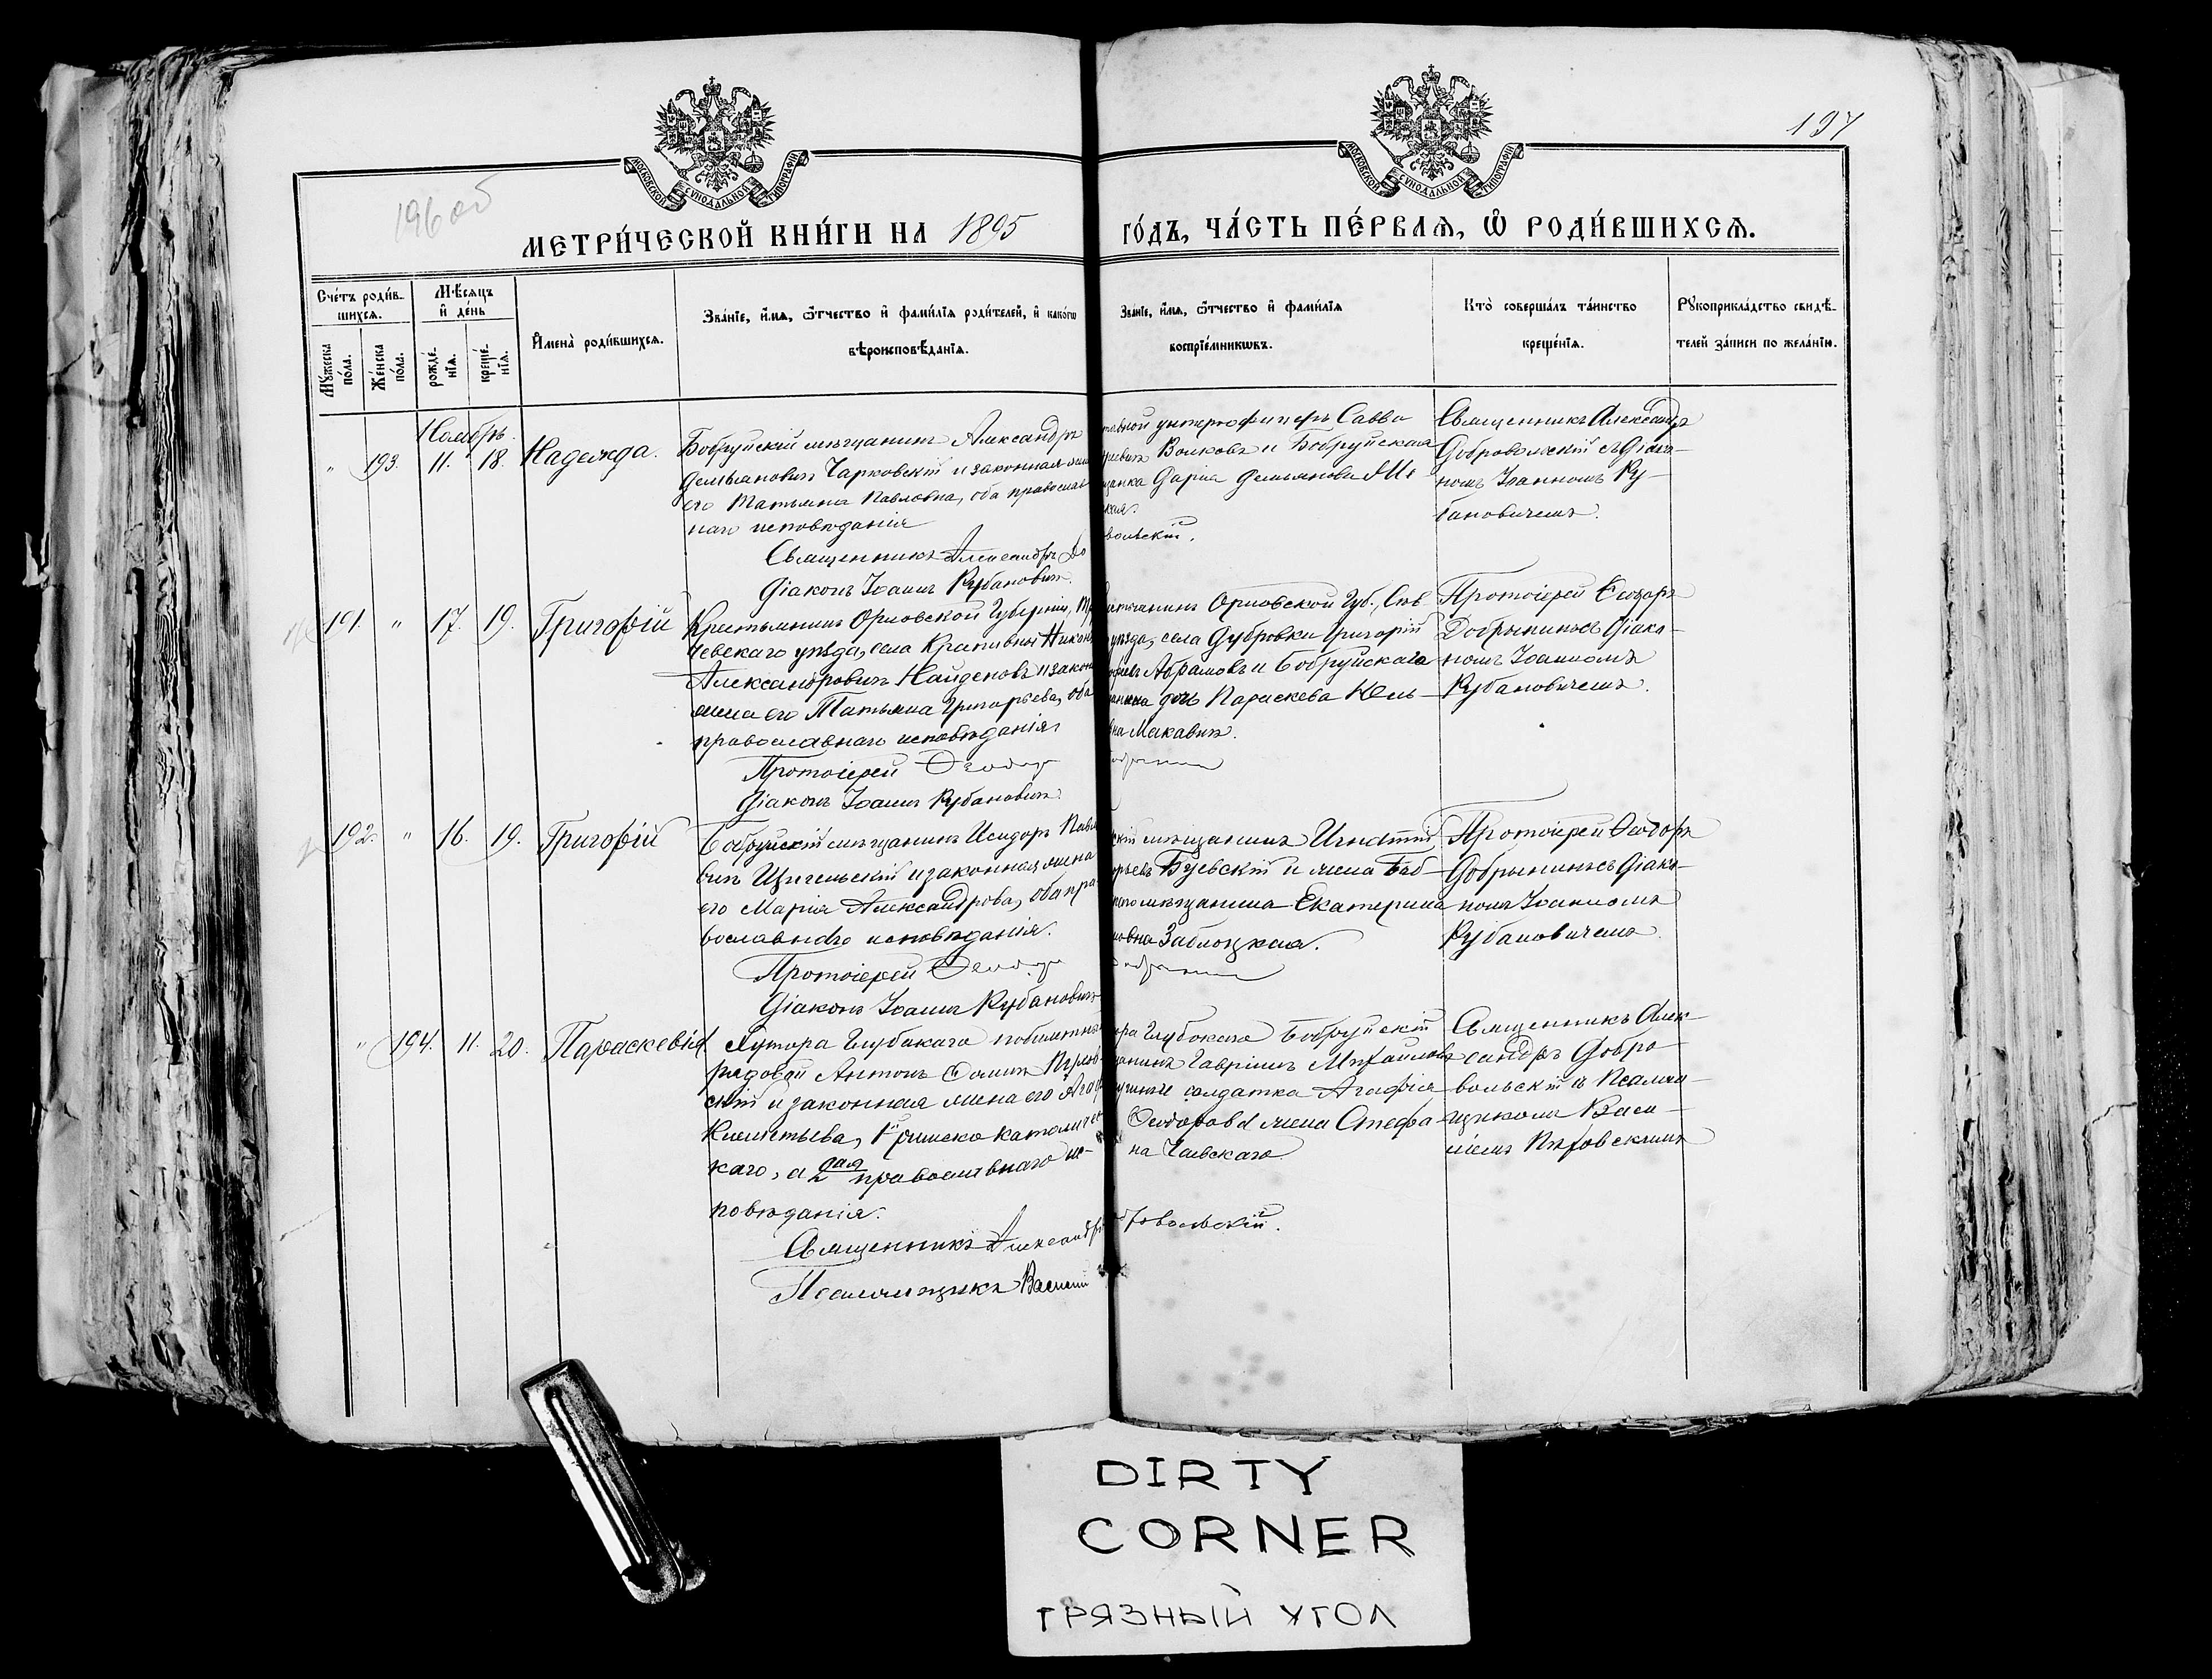 МОСКОВСКОЙ СѴНОДАЛЬНОЙ ТИПОГРАФІИ
МОСКОВСКОЙ СѴНОДАЛЬНОЙ ТИПОГРАФІИ
196 об
197
МЕТРИ́ЧЕСКОЙ КНИ́ГИ НА 1895
ГО́ДЪ, ЧА́СТЬ ПЕ́РВАѦ, Ѡ РОДИ́ВШИХСѦ.
Сче́тъ роди́в-
шихсѧ.
Мꙋ́жеска по́ла.
Же́нска по́ла.
Мѣ́сѧцъ
и҆ де́нь
рожде́-
нїѧ.
креще́-
нїѧ.
И҆мена̀ роди́вшихсѧ.
Зва́нїе, и҆́мѧ, ѻ҆́тчество и҆ фами́лїѧ роди́телей, и҆ како́гѡ
вѣроисповѣ́данїѧ.
Зва́нїе, и҆́мѧ, ѻ҆́тчество и҆ фами́лїѧ
воспрїе́мникѡвъ.
Кто̀ соверша́лъ та́инство
креще́нїѧ.
Рꙋкоприкла́дство свидѣ́-
телей за́писи по жела́нїю.
Ноябрь.
" 193. 11. 18. Надежда.
Бобруйскій мѣщанинъ Александръ
Демьяновичъ Чарковскій и законная жена
его Татьяна Павловна, оба православ
наго исповѣданія
Священникъ Александръ До
Діаконъ Іоаннъ Рубановичъ.
унтерофицеръ Савва
Волковъ и Бобруйская
щанка Дарія Демьянова
кая.
вольскій.
Священникъ Александръ
Добровольскій съ Діако-
номъ Іоанномъ Ру-
бановичемъ.
191. " 17. 19. Григорій
Крестьянинъ Орловской Губерніи, Тру
чевскаго уѣзда, села Крапивны
Александровичъ Найденовъ и закон
жена его Татьяна Григорьева, оба
православнаго исповѣданія
Протоіерей Ѳеодоръ
Діаконъ Іоаннъ Рубановичъ.
Орловской Губ., Сѣв
уѣзда, села Дубровки Григорій
Абрамовъ и Бобруйскаго
дочь Параскева
на Макавичъ.
Протоіерей Ѳеодоръ
Добрынинъ съ Діако-
номъ Іоанномъ
Рубановичемъ.
192. " 16. 19. Григорій
Бобруйскій мѣщанинъ Исидоръ Павло
вичъ и законная жена
его Марія Александрова, оба пра
вославнаго исповѣданія.
Протоіерей Ѳеодоръ
Діаконъ Іоаннъ Рубановичъ
скій мѣщанинъ Игнатій
Буевскій и жена Боб
мѣщанина Екатерина
новна Заблоцкая.
Протоіерей Ѳеодоръ
Добрынинъ съ Діако-
номъ Іоанномъ
Рубановичемъ.
" 194. 11. 20. Параскевія.
Хутора Глубокаго
рядовой Антонъ
скій и законная жена его Агаф
Климентьева, 1й римско католичес
каго, а 2 ая православнаго ис-
повѣданія.
Священникъ Александръ
Псаломщикъ Василій
ра Глубокаго Бобруйскій
щанинъ Гавріилъ Михайловъ
солдатка Агафія
Ѳеодорова жена Стефа-
на
вольскій.
Священникъ Алек-
сандръ Добро-
вольскій съ Псалом-
щикомъ Васи-
ліемъ
DIRTY
CORNER
ГРЯЗНЫЙ УГОЛ